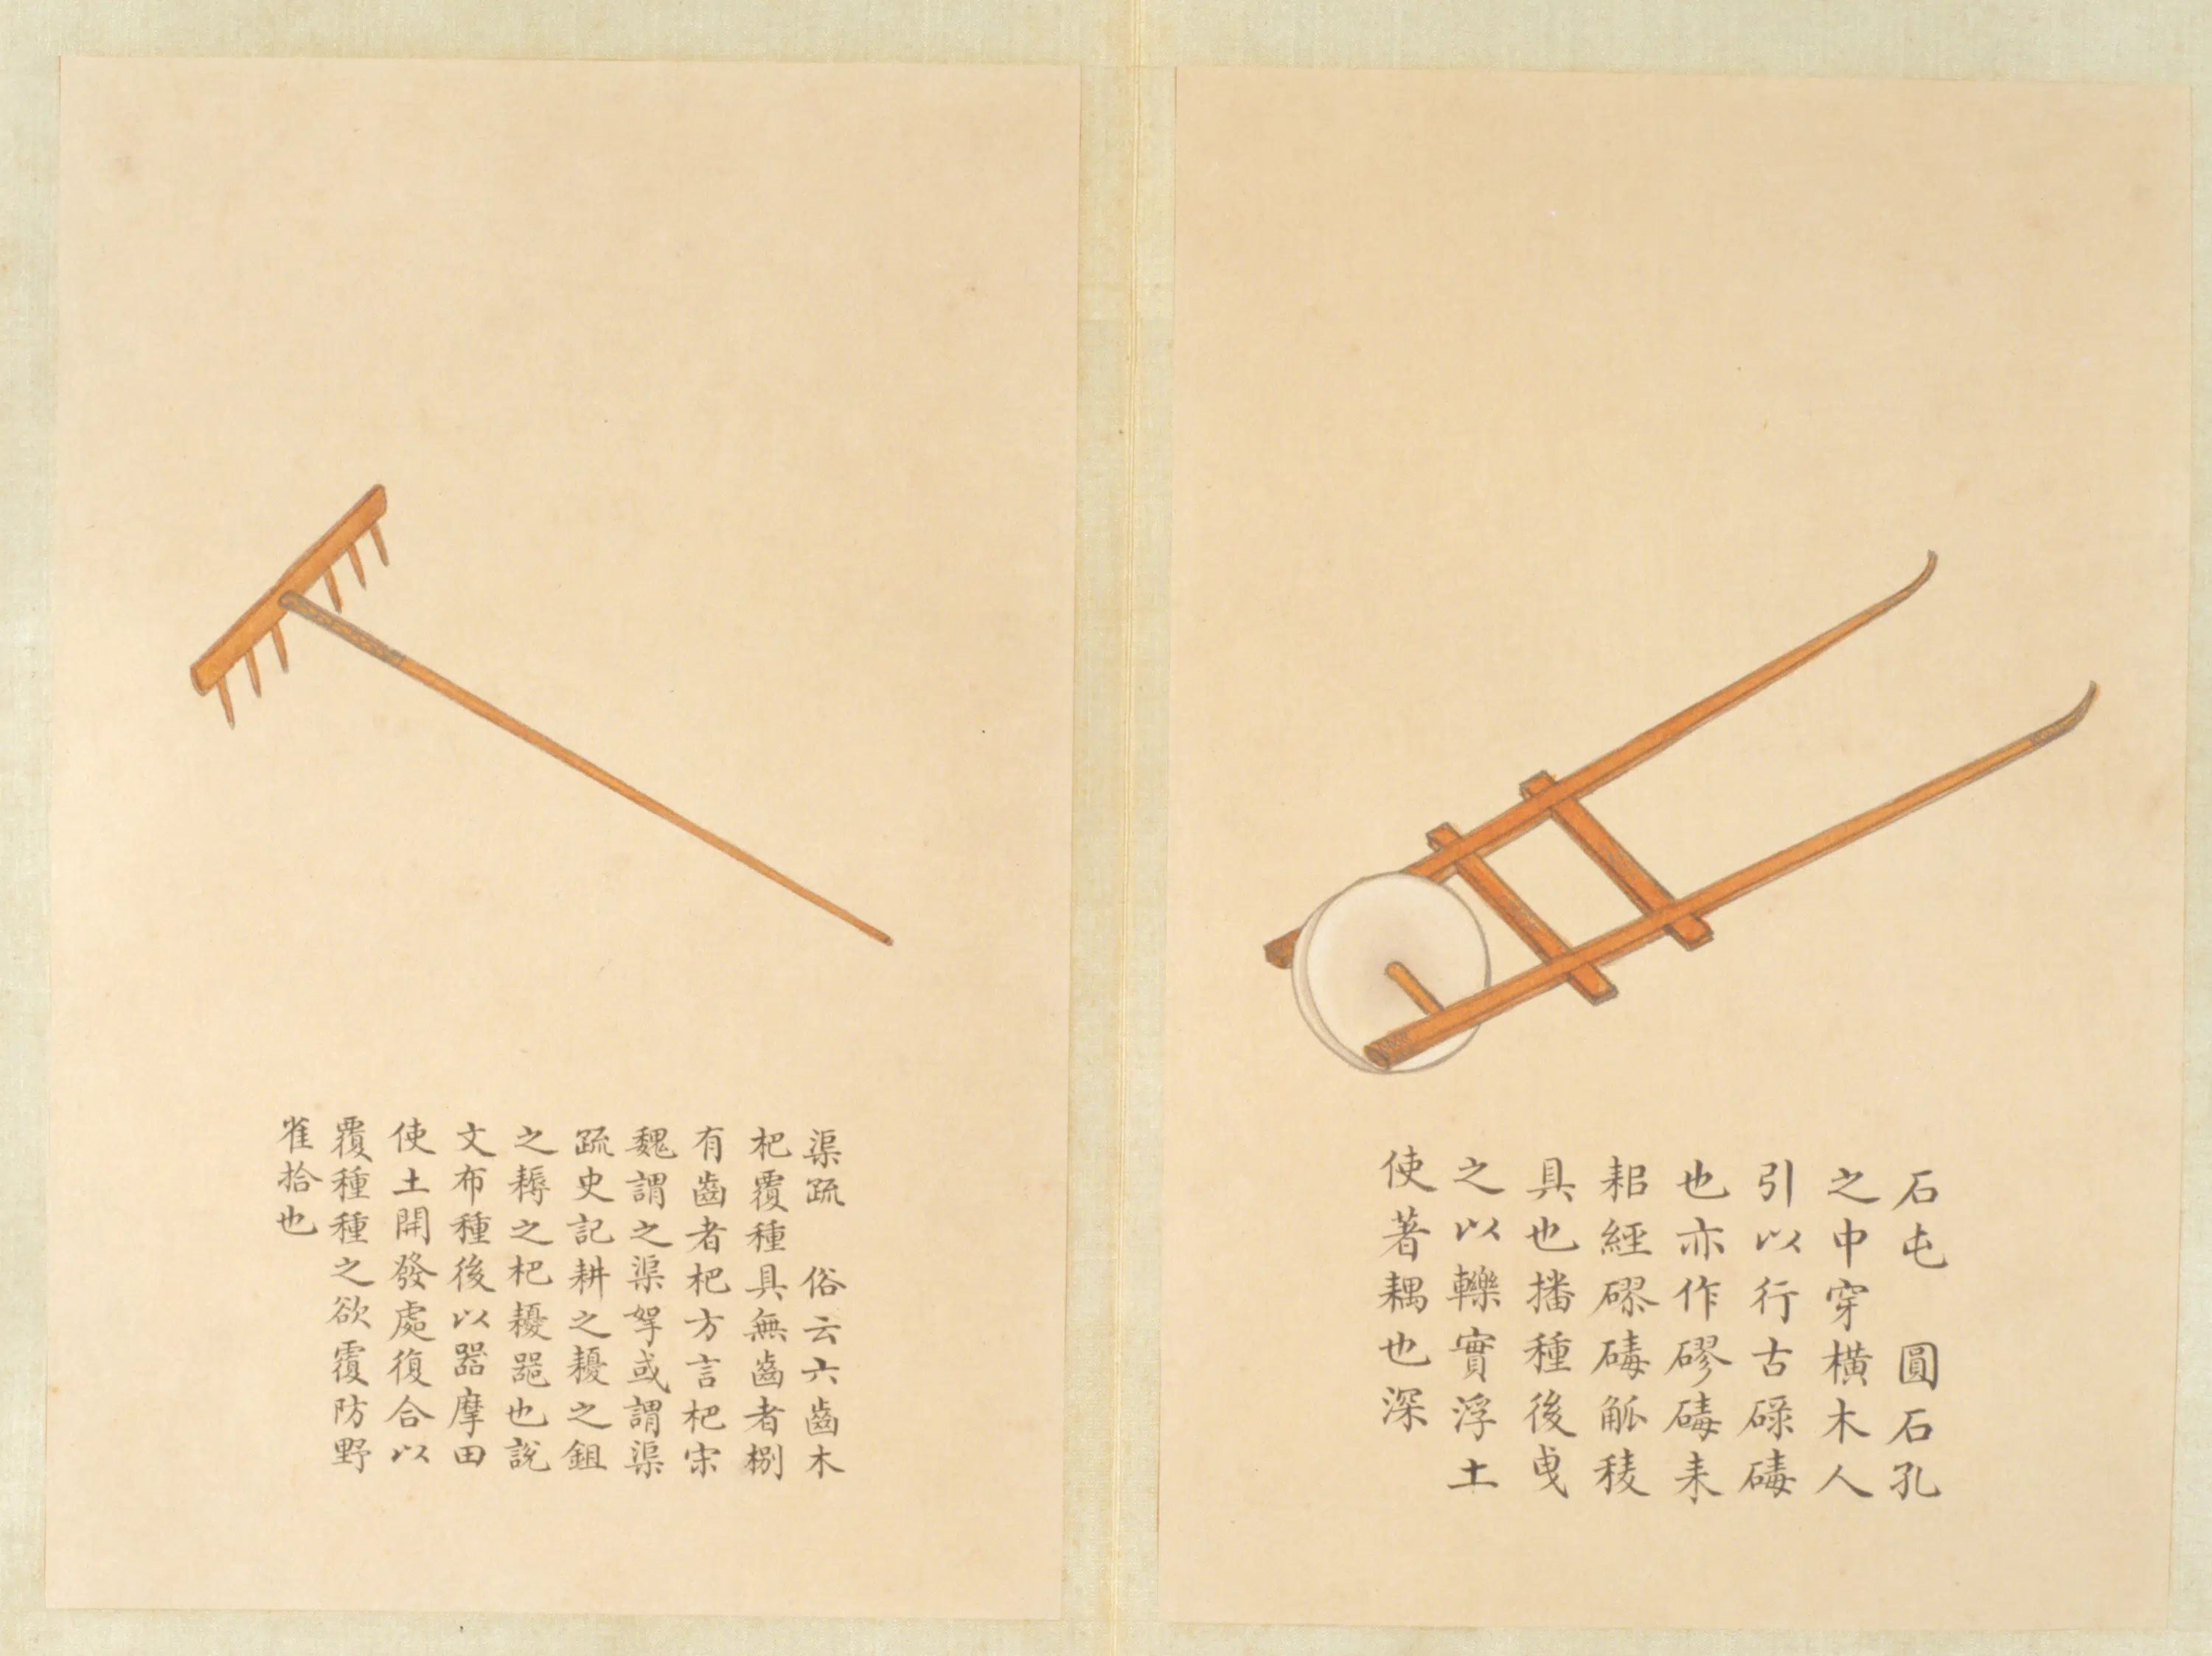 石屯　圓石孔
之中穿橫木人
引以行古磟碡
也亦作磟碡耒
耜經磟碡觚稜
具也播種後曳
之以轢實浮土
使著耦也深
渠疏　俗云六齒木
杷覆種具無齒者捌
有齒者杷方言杷宋
魏謂之渠挐或謂渠
疏史記耕之耰之鉏
之耨之杷耰器也說
文布種後以器摩田
使土開發處復合以
覆種種之欲覆防野
雀拾也